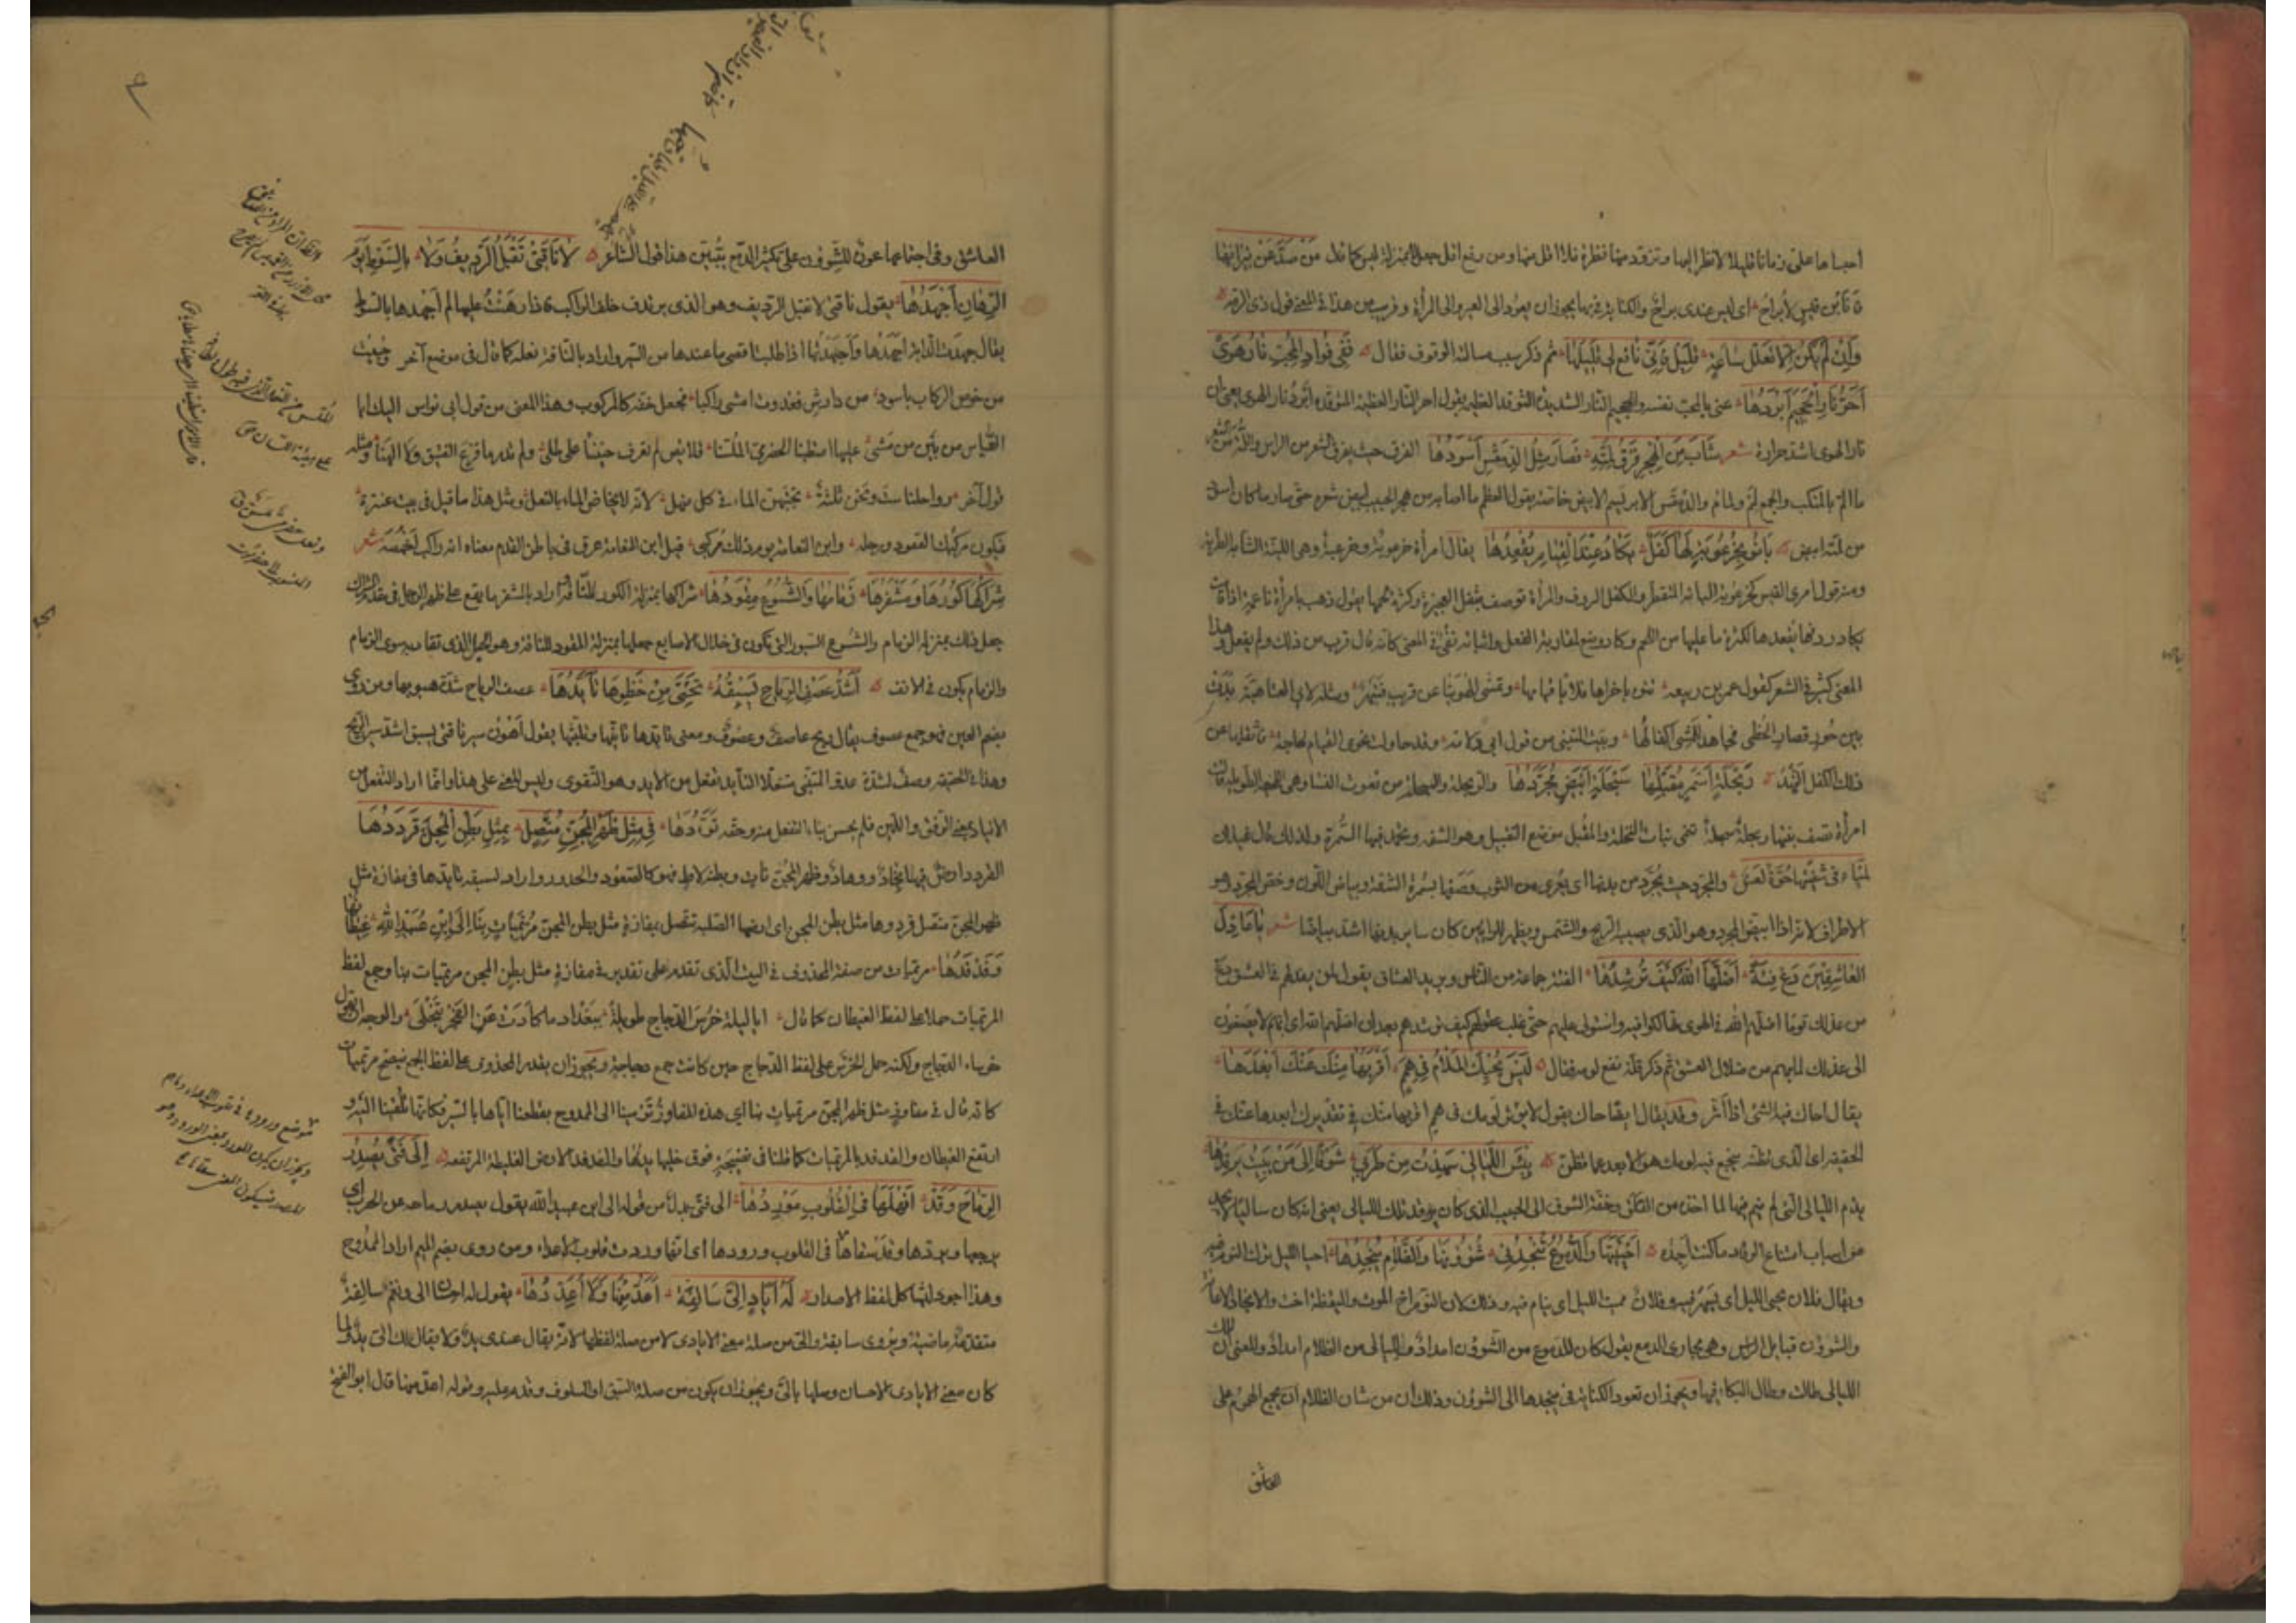 احبسها على زمانا قليلا لانظر اليها وتزود منها فنظرة فلا اقل منها ومن رفع اقل جعل لا بمنزلة ليس كما قال مَنْ صَدَّ عَنْ نِيرَانِهَا
فانا ابن قيس لا براح اى ليس عندى براح والكناية فى بها يجوز ان يعود الى العير والى المرأة وقريب من هذا فى المعنى قول ذى الرمة
وَاِنْ لَمْ يَكُنْ اِلَّا تَعَلُّلَ سَاعَةٍ قَلِيلٌ فَاِنِّى نَافِعٌ لِى قَلِيلُهَا ثم ذكر سبب مسالته الوقوف فقال فَفِى فُؤَادِ الْمُحِبِّ نَارُ هَوًى
اَحَرُّ نَارِ الْجَحِيمِ اَبْرَدُهَا عنى بالمحب نفسه والجحيم النار الشديدة التوقد العظيمة يقول احر النار العظيمة المتوقدة ابرد نار الهوى يعنى ان
نار الهوى اشد حرارة شعر شَابَ مِنَ الْهَجْرِ فَرْقُ لِمَّتِهِ فَصَارَ مِثْلَ الدِّمَقْسِ اَسْوَدُهَا الفرق حيث يفرق الشعر من الراس واللمة من الشعر
ما الم بالمنكب والجمع لمم ولمام والدمقس الابريسم الابيض خاصة يقول لعظم ما اصابه من هجر الحبيب ابيض شعره حتى صار ما كان اسود
من لمته ابيض بَانُوا بِخُرْعُوبَةٍ لَهَا كَفَلٌ يَكَادُ عِنْدَ الْقِيَامِ يُقْعِدُهَا يقال امرأة خرعوبة وخرعبة وهى اللينة الشابة الطرية
ومنه قول امرئ القيس كخرعوبة البانة المنفطر والكفل الردف والمرأة توصف بثقل العجيزة وكثرة لحمها يقول ذهب بامرأة ناعمة اذا قامت
يكاد ردفها يقعدها لكثرة ما عليها من اللحم وكاد وضع لمقاربة الفعل واثباته نفى فى المعنى كانه قال قرب من ذلك ولم يفعل وهذا
المعنى كثير فى الشعر كقول عمر بن ربيعة تنوء باخراها فلأيا قيامها وتمشى الهوينا عن قريب فتبهر ومثله لابى العتاهية بدت
بين حور قصار الخطى تجاهد للمشى اكفالها وبيت المتنبى من قول ابى دلامة وقد حاولت نحوى القيام لحاجة فاثقلها عن
ذلك الكفل النهد رَبْحَلَةٍ اَسْمَرٍ مُقَبَّلُهَا سِبَحْلَةٍ اَبْيَضٍ مُجَرَّدُهَا والربحلة والسبحلة من نعوت النساء وهى الضخمة الطويلة قالت
امرأة تصف بنتها ربحلة سبحلة تنمى نبات النخلة والمقبل موضع التقبيل وهو الشفه ويحمد فيها السمرة ولذلك قال غيلان
لمياء فى شفتيها حوة لعس والمجرد حيث تجرد من بدنها اى يعرى من الثوب وصفها بسمرة الشفة وبياض اللون وخص المجرد وهو
الاطراف لانه اذا ابيض المجرد وهو الذى يصيبه الريح والشمس ويظهر للرائين كان سائر بدنها اشد بياضا شعر يَا عَاذِلَ
الْعَاشِقِينَ دَعْ فِئَةً اَضَلَّهَا اللهُ كَيْفَ تُرْشِدُهَا الفئة جماعة من الناس ويريد العشاق يقول لمن يعذلهم فى العشق دع
من عذلك قوما اضلهم الله فى الهوى تهالكوا فيه واستولى عليهم حتى غلب عقولهم كيف ترشدهم بعد ان اضلهم الله اى انهم لا يصغون
الى عذلك لما بهم من ضلال العشق ثم ذكر قلة نفع لومه فقال لَيْسَ يُحِيكُ الْمَلَامُ فِى هِمَمٍ اَقْرَبُهَا مِنْكَ عَنْكَ اَبْعَدُهَا
يقال احاك فيه الشئ اذا اثر وقد يقال ايضا حاك يقول لا يؤثر لومك فى همم اقربها منك فى تقديرك ابعدها عنك فى
الحقيقة اى الذى تظنه ينجع فيه لومك هو الابعد مما تظن بِئْسَ اللَّيَالِى سَهِدْتُ مِنْ طَرَبِى شَوْقًا اِلَى مَنْ يَبِيتُ يَرْقُدُهَا
يذم الليالى التى لم ينم فيها لما اخذه من القلق وخفة الشوق الى الحبيب الذى كان يرقد تلك الليالى يعنى انه كان ساليا لا يجد
من اسباب امتناع الرقاد ما كنت اجده اَحْيَيْتُهَا وَالدُّمُوعُ تُنْجِدُنِى شُؤُونُهَا وَالظَّلَامُ يُنْجِدُهَا احيا الليل ترك النوم فيه
ويقال فلان يحيى الليل اى يسهر فيه وفلان يميت الليل اى ينام فيه وذلك لان النوم اخ الموت واليقظة اخت والانجاد الاعانة
والشؤون قبايل الراس وهى مجارى الدمع يقول كان للدموع من الشؤون امداد ولليالى من الظلام امداد والمعنى ان تلك
الليالى طالت وطال البكاء فيها ويجوز ان تعود الكناية فى ينجدها الى الشؤون وذلك ان من شان الظلام ان يجمع الهموم على
العاشق
العاشق وفى اجتماعها عون للشؤون على تكثير الدمع يبين هذا قول الشاعر لَا نَاقَتِى تَقْبَلُ الرَّدِيفَ وَلَا بِالسَّوْطِ يَوْمَ
الرِّهَانِ اُجْهِدُهَا يقول ناقتى لا تقبل الرديف وهو الذى يرتدف خلف الراكب واذا رهنت عليها لم اجهدها بالسوط
يقال جهدت الدابة اجهدها واجهدتها اذا طلبت اقصى ما عندها من السير واراد بالناقة نعله كما قال فى موضع آخر وحبيت
من خوص الركاب باسود من دارش فغدوت امشى راكبا فجعل خفه كالمركوب وهذا المعنى من قول ابى نواس اليك ابا
العباس من بين من مشى عليها امتطينا الحضرمى الملسنا قلائص لم تعرف حنينا على طلى ولم تدر ما قرع الفنيق ولا الهنا ومثله
قول آخر رواحلنا ست ونحن ثلثة نجنبهن الماء فى كل منهل لانه لا يخاض الماء بالنعل ومثل هذا ما قيل فى بيت عنترة
فيكون مركبك القعود ورحله وابن النعامة يوم ذلك مركبى قيل ابن النعامة عرق فى باطن القدم معناه انه راكب اخمصه شعر
شِرَاكُهَا كُورُهَا وَمِشْفَرُهَا زِمَامُهَا وَالشُّسُوعُ مِقْوَدُهَا شراكها بمنزلة الكور للناقة واراد بالمشفر ما يقع على ظهر الرجل فى مقدم الشراك
جعل ذلك بمنزلة الزمام والشسوع السيور التى تكون فى خلال الاصابع جعلها بمنزلة المقود للناقة وهو الحبل الذى تقاد به سوى الزمام
والزمام يكون فى الانف اَشَدُّ عَصْفِ الرِّيَاحِ يَسْبِقُهُ تَحْتِىَ مِنْ خَطْوِهَا تَاَيُّدُهَا عصف الرياح شدة هبوبها ومن روى
بضم العين فهو جمع عصوف يقال ريح عاصف وعصوف ومعنى تايدها تانيها وتلبثها يقول اهون سير ناقتى يسبق اشد سير الريح
وهذا فى الحقيقة وصف لشدة عدو المتنبى متنعلا التأيد تفعل من الايد وهو التقوى وليس المعنى على هذا وانما اراد التفعل من
الاتياد بمعنى الرفق واللين فلم يحسن بناء التفعل منه وحقه تَوَؤُّدُهَا فِى مِثْلِ ظَهْرِ الْمِجَنِّ مُتَّصِلٍ بِمِثْلِ بَطْنِ الْمِجَنِّ قَرْدَدُهَا
القردد ارض فيها نجاد ووهاد وظهر المجن نات وبطنه لاطئ فهو كالصعود والحدور واراد تسبقه تايدها فى مفازة مثل
ظهر المجن متصل قرددها مثل بطن المجن اى ارضها الصلبة تتصل بمفازة مثل بطن المجن مُرْتَمِيَاتٌ بِنَا اِلَى ابْنِ عُبَيْدِ اللهِ غِيطَانُهَا
وَفَدْفَدُهَا مرتميات من صفة المحذوف فى البيت الذى تقدم على تقدير فى مفازة مثل بطن المجن مرتميات بنا وجمع لفظ
المرتميات حملا على لفظ الغيطان كما قال ايا ليلة خرس الدجاج طويلة ببغداد ما كادت عن الفجر تنجلى والوجه ان يقول
خرساء الدجاج ولكنه حمل الخرس على لفظ الدجاج حين كانت جمع دجاجة ويجوز ان يقدر المحذوف على لفظ الجمع فيصح مرتميات
كانه قال فى مفاوز مثل ظهر المجن مرتميات بنا اى هذه المفاوز ترمينا الى الممدوح بقطعنا اياها بالسير فكانها تلقينا اليه و
ارتفع الغيطان والفدفد بالمرتميات كما قلنا فى ضنجه فوق خلبها بدها والفدفد الارض الغليظة المرتفعة اِلَى فَتًى يُصْدِرُ
الرِّمَاحَ وَقَدْ اَنْهَلَهَا فِى الْقُلُوبِ مَوْرِدُهَا الى فتى بدل من قوله الى ابن عبيد الله يقول يصدر رماحه عن الحرب اى
يرجعها ويردها وقد سقاها فى القلوب ورودها اى انها وردت قلوب الاعداء ومن روى بضم الميم اراد الممدوح
وهذا اجود لتشاكل لفظ الاصدار لَهُ اَيَادٍ اِلَىَّ سَالِفَةٌ اَعُدُّ مِنْهَا وَلَا اُعَدِّدُهَا يقول له احسان الى ونعم سالفة
متقدمة ماضية ويروى سابقة والى من صلة معنى الايادى لا من صلة لفظها لانه يقال عندى يد ولا يقال لك الى يد ولما
كان معنى الايادى الاحسان وصلها بالى ويجوز ان يكون من صلة السبق او السلوف وقدم عليه وقوله اعد منها قال ابو الفتح